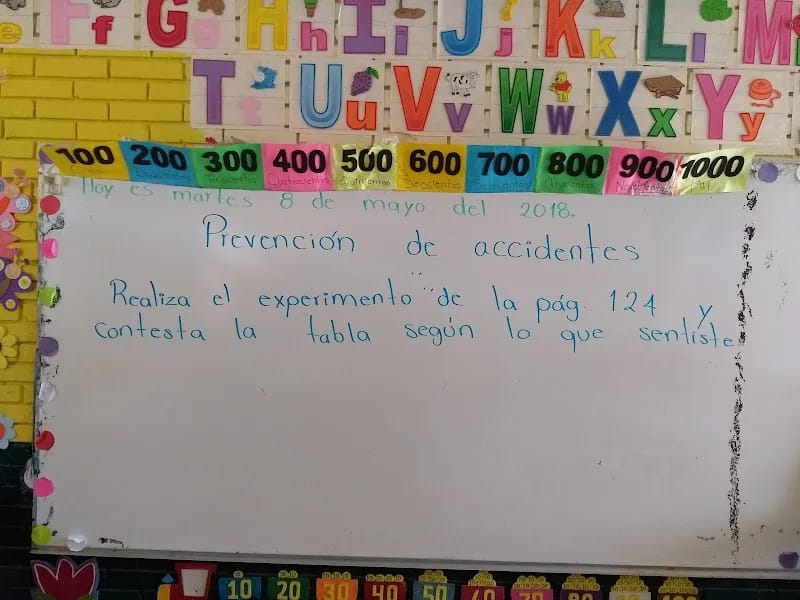 e F f G g H h I i J j K k L l M
T t U u V v W w X x Y y
100 200 300 400 500 600 700 800 900 1000
Doscientos Trescientos Cuatrocientos Quinientos Seiscientos Setecientos Ochocientos Novecientos Mil
Hoy es martes 8 de mayo del 2018.
Prevención de accidentes
Realiza el experimento de la pág. 124 y
contesta la tabla según lo que sentiste
10 20 30 40 50 60 70